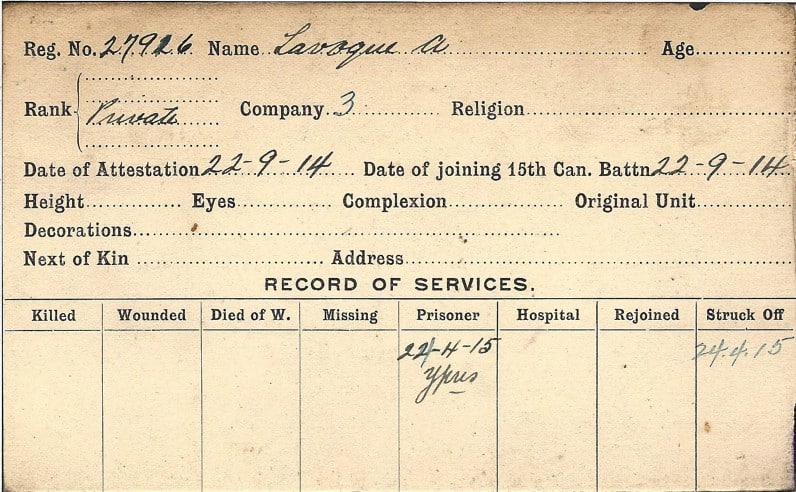 Reg. No. 27926 Name Lavogue A Age
Rank Private Company 3 Religion
Date of Attestation 22-9-14 Date of joining 15th Can. Battn 22-9-14
Height Eyes Complexion Original Unit
Decorations
Next of Kin Address
RECORD OF SERVICES.
Killed Wounded Died of W. Missing Prisoner Hospital Rejoined Struck Off
24-4-15 24.4.15
Ypres